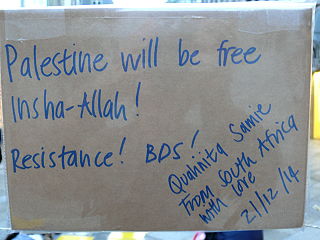 Palestine will be free
Insha-Allah!
Resistance! BDS!
Quannita Samie
From South Africa
with love
21/12/14